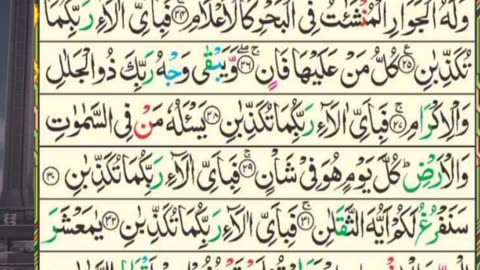 وَلَهُ الْجَوَارِ الْمُنْشَئٰتُ فِى الْبَحْرِ كَالْاَعْلَامِ ۝۲۴ فَبِاَىِّ اٰلَآءِ رَبِّكُمَا
تُكَذِّبٰنِ ۝۲۵ كُلُّ مَنْ عَلَيْهَا فَانٍ ۝۲۶ وَّيَبْقٰى وَجْهُ رَبِّكَ ذُو الْجَلٰلِ
وَالْاِكْرَامِ ۝۲۷ فَبِاَىِّ اٰلَآءِ رَبِّكُمَا تُكَذِّبٰنِ ۝۲۸ يَسْئَلُهٗ مَنْ فِى السَّمٰوٰتِ
وَالْاَرْضِ كُلَّ يَوْمٍ هُوَ فِىْ شَاْنٍ ۝۲۹ فَبِاَىِّ اٰلَآءِ رَبِّكُمَا تُكَذِّبٰنِ ۝۳۰
سَنَفْرُغُ لَكُمْ اَيُّهَ الثَّقَلٰنِ ۝۳۱ فَبِاَىِّ اٰلَآءِ رَبِّكُمَا تُكَذِّبٰنِ ۝۳۲ يٰمَعْشَرَ